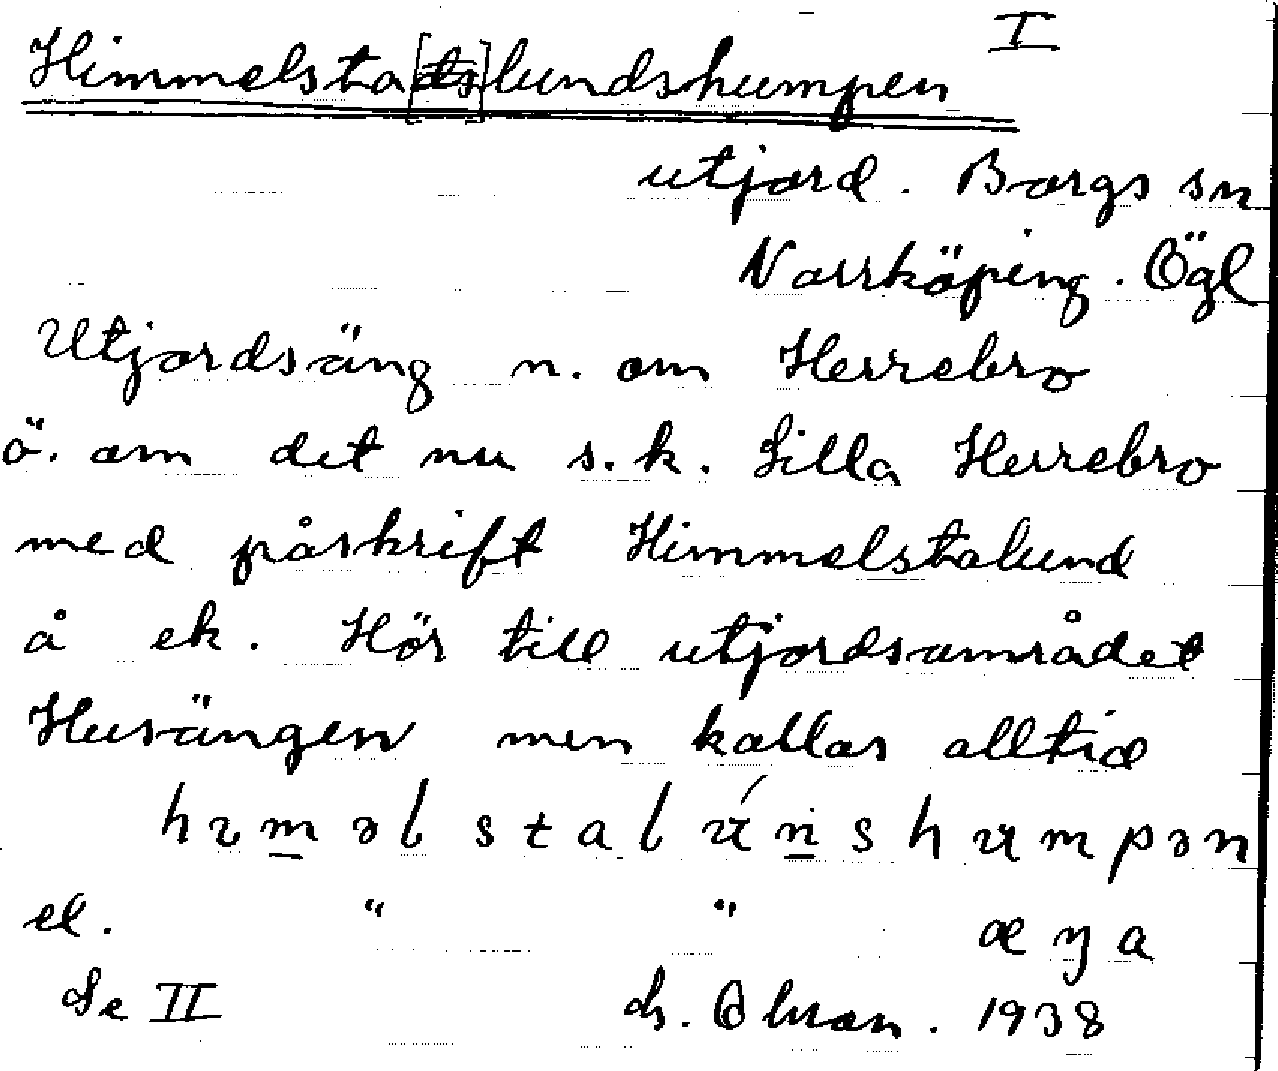 I
Himmelsta[ds]lundshumpen
utjord. Borgs sn
Norrköping. Ögl
Utjordsäng n. om Herrebro
ö. om det nu s.k. Lilla Herrebro
med påskrift Himmelstalund
å ek. Hör till utjordsområdet
Husängen men kallas alltid
el. " " æŋa
Se II 1938